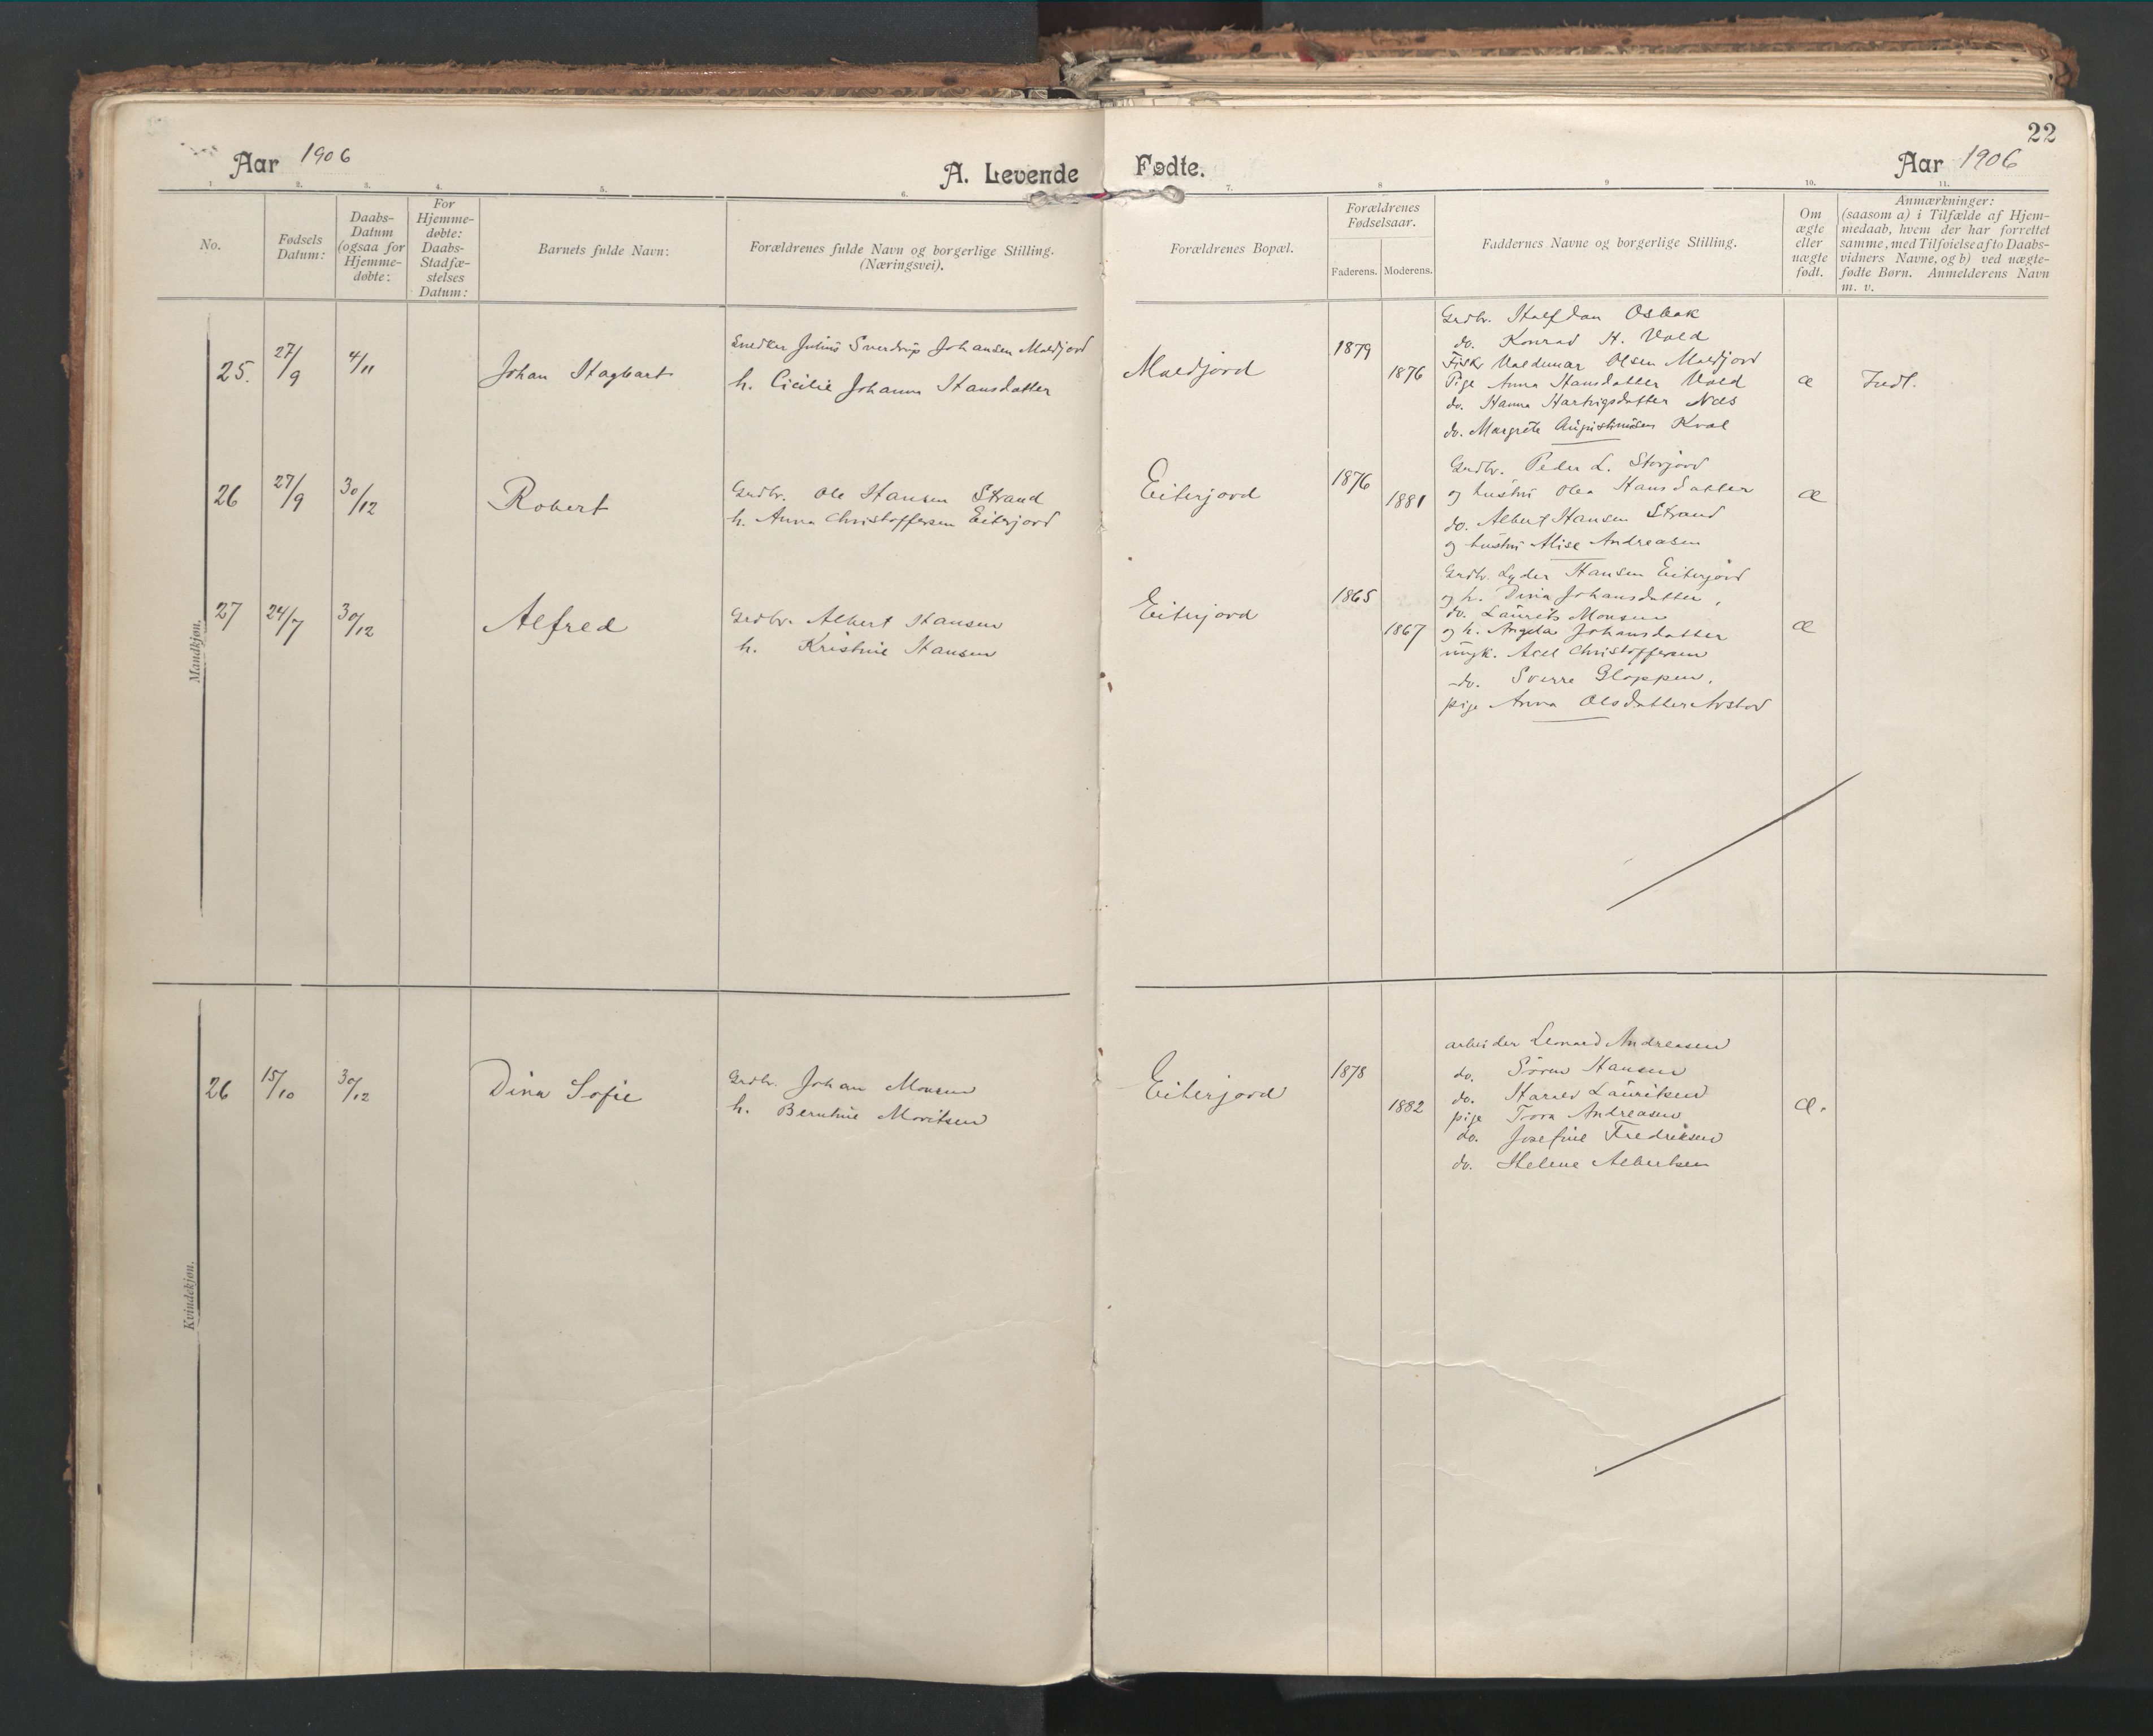 22
Aar 1906
A. Levende Fødte.
Aar 1906
1. 2. 3. 4. 5. 6. 7. 8 9 10. 11.
No.
Fødsels
Datum:
Daabs-
Datum
(ogsaa for
Hjemme-
døbte:
For
Hjemme-
døbte:
Daabs-
Stadfæ-
stelses
Datum:
Barnets fulde Navn:
Forældrenes fulde Navn og borgerlige Stilling.
(Næringsvei).
Forældrenes Bopæl.
Forældrenes
Fødselsaar.
Faderens. Moderens.
Faddernes Navne og borgerlige Stilling.
Om
ægte
eller
uægte
født.
Anmærkninger:
(saasom a) i Tilfælde af Hjem-
medaab, hvem der har forrettet
samme, med Tilføielse af to Daabs-
vidners Navne, og b) ved uægte-
fødte Børn. Anmelderens Navn
m. v.
Mandkjøn.
25. 27/9 4/11
Johan Hagbart
Snedker Julius Sverdrup Johansen Maldjord
h. Cicilie Johanna Hansdatter
Maldjord
1879
1876
Grdbr. Halfdan Osbak
do. Konrad H. Vold
Fisk. Valdemar Olsen Maldjord
Pige Anna Hansdatter Vold
do. Hanna Hartvigsdatter Næs
do. Margrete Augustinusen Kval
æ
Indl.
26 27/9 30/12
Robert
Grdbr. Ole Hansen Strand
h. Anna Christoffersen Eiterjord
Eiterjord
1876
1881
Grdbr. Peder L. Storjord
og hustru Olea Hansdatter
do. Albert Hansen Strand
og hustru Alise Andreasen
æ
27 24/7 30/12
Alfred
Grdbr. Albert Hansen
h. Kristine Hansen
Eiterjord
1865
1867
Grdbr. Lyder Hansen Eiterjord
og h. Dina Johansdatter,
do. Laurits Monsen
og h. Angela Johansdatter
ungk. Axel Christoffersen
do. Sverre Gloppen.
pige Anna Olsdatter
æ
Kvindekjøn.
26 15/10 30/12
Dina Sofie
Grdbr. Johan Monsen
h. Berntine Moritsen
Eiterjord
1878
1882
arbeider Leonard Andreasen
do. Søren Hansen
do. Harald Lauritsen
pige Tora Andreasen
do. Josefine Fredriksen
do. Helene Albertsen
æ.